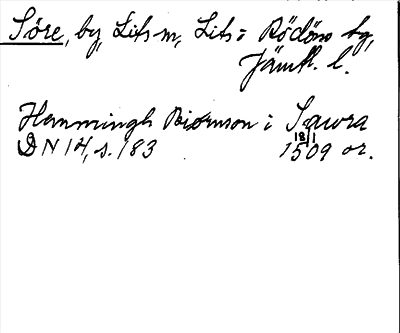 Söre, by, Lits sn, Lits o Rödöns tg,
Jämtl. l.
Hemmingh Biørnson i Søwra
DN 14, s. 183 18/1 1509 or.